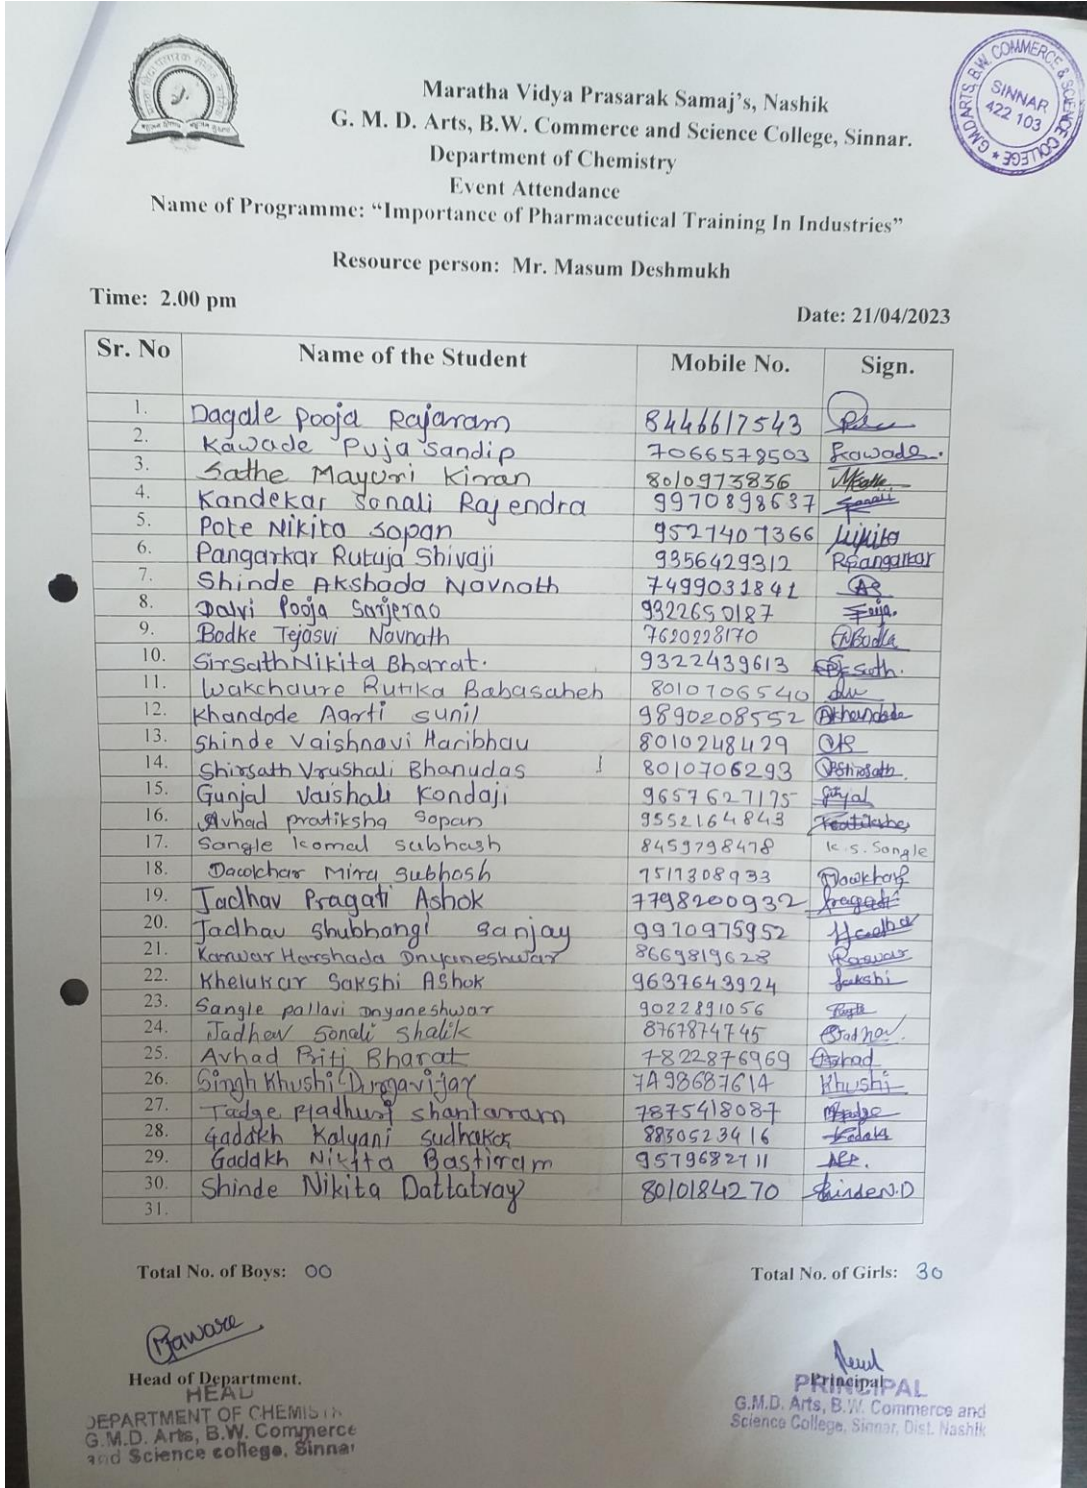 Maratha Vidya Prasarak Samaj's, Nashik
G. M. D. Arts, B.W. Commerce and Science College, Sinnar.
Department of Chemistry
Event Attendance
Name of Programme: “Importance of Pharmaceutical Training In Industries”
G.M.D ARTS, B.W. COMMERCE & SCIENCE COLLEGE ★
SINNAR
422 103
Resource person: Mr. Masum Deshmukh
Time: 2.00 pm
Date: 21/04/2023
Sr. No Name of the Student Mobile No. Sign.
1. Dagale Pooja Rajaram 8446617543
2. Kawade Puja Sandip 7066578503 Kawade.
3. Sathe Mayuri Kiran 8010973836
4. Kandekar Sonali Rajendra 9970898637 Sonali
5. Pote Nikita Sopan 9527407366 Nikita
6. Pangarkar Rutuja Shivaji 9356429312 Rpangarkar
7. Shinde Akshada Navnath 7499031841 AS
8. Dalvi Pooja Sarjerao 9322650187 Pooja.
9. Bodke Tejasvi Navnath 7620228170 Bodke
10. Sirsath Nikita Bharat. 9322439613
11. Wakchaure Rutika Babasaheb 8010706540
12. Khandode Aarti sunil 9890208552 Akhandode
13. Shinde Vaishnavi Haribhau 8010248429 VS
14. Shirsath Vrushali Bhanudas 8010706293 VBShirsath
15. Gunjal Vaishali Kondaji 9657627175 Gunjal
16. Avhad pratiksha Sopan 9552164843 Pratiksha
17. Sangle komal subhash 8459798478 K.S. Sangle
18. Dawkhar Mira Subhash 7517308933 Dawkhar
19. Jadhav Pragati Ashok 7798200932 Pragati
20. Jadhav Shubhangi Sanjay 9970975952
21. Kanwar Harshada Dnyaneshwar 8669819628
22. Khelukar Sakshi Ashok 9637643924 Sakshi
23. Sangle pallavi Dnyaneshwar 9022891056
24. Jadhav Sonali Shalik 8767874745 Jadhav.
25. Avhad Priti Bharat 7822876969 Avhad
26. Singh Khushi Durgavijay 7498687614 Khushi
27. Tadge Madhuri Shantaram 7875418087
28. Gadakh Kalyani Sudhakar 8830523416 Gadakh
29. Gadakh Nikita Bastiram 9579682711
30. Shinde Nikita Dattatray 8010184270 Shinde N.D
31.
Total No. of Boys: 00
Total No. of Girls: 30
Head of Department.
HEAD
DEPARTMENT OF CHEMISTRY
G.M.D. Arts, B.W. Commerce
and Science college, Sinnar
Principal
PRINCIPAL
G.M.D. Arts, B.W. Commerce and
Science College, Sinnar, Dist. Nashik